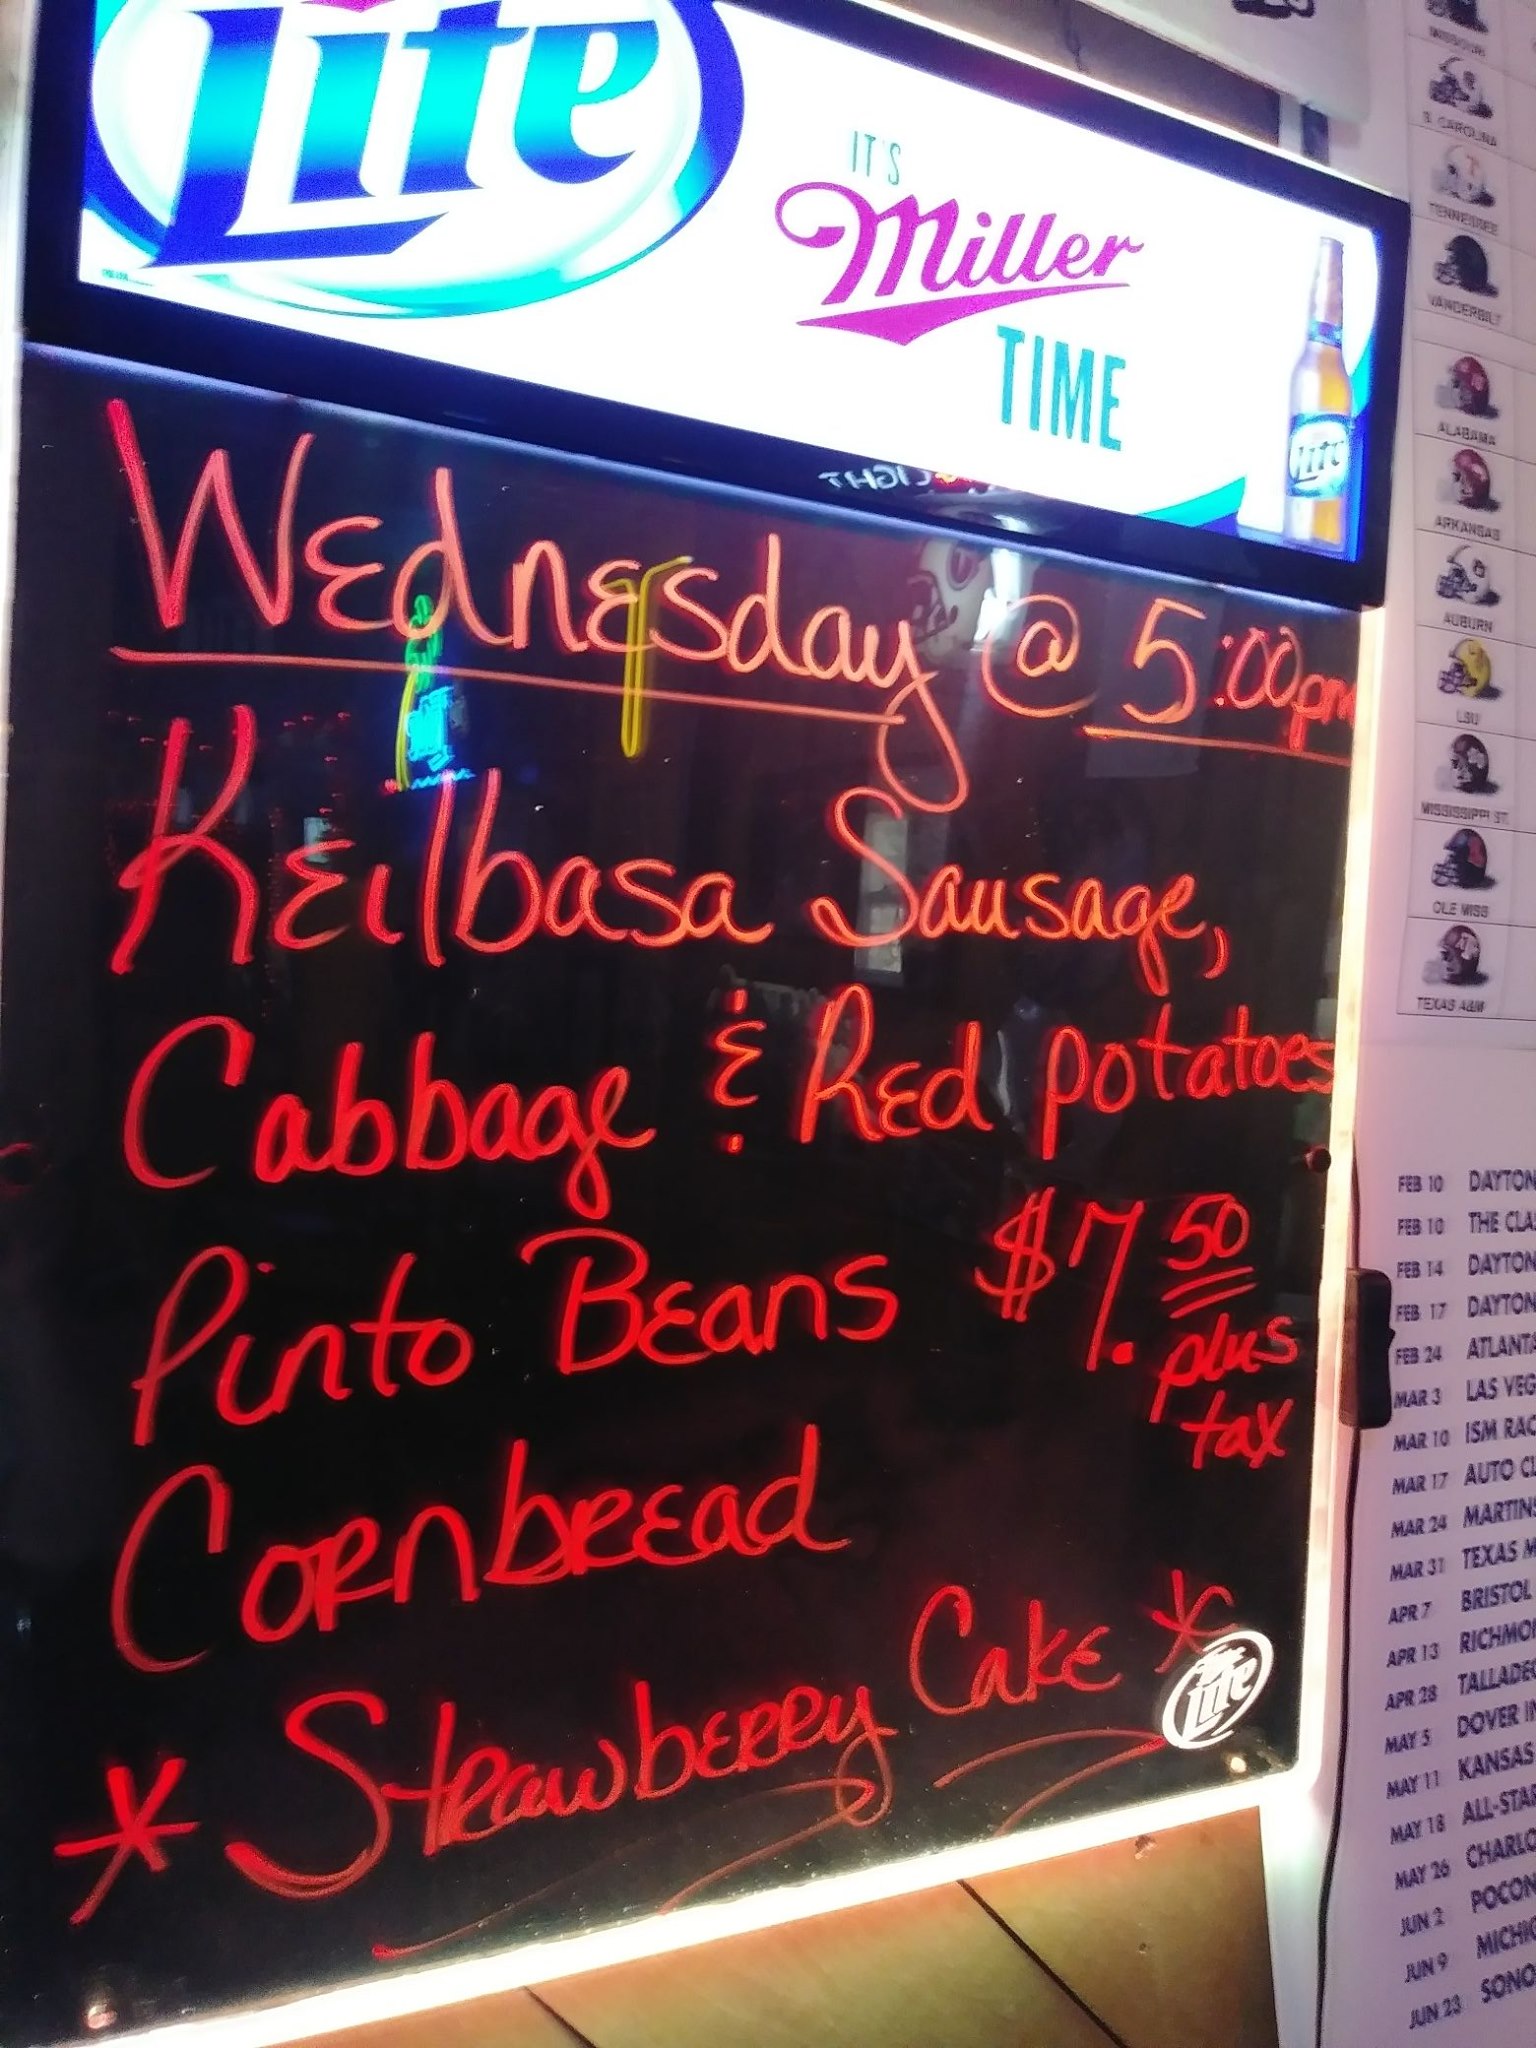 Lite
IT'S
Miller
TIME
Lite
Wednesday @ 5:00pm
Keilbasa Sausage,
Cabbage & Red potatoes
Pinto Beans $7.50
plus
tax
Cornbread
* Strawberry Cake *
Lite
MISSOURI
S. CAROLINA
TENNESSEE
VANDERBILT
ALABAMA
ARKANSAS
AUBURN
LSU
MISSISSIPPI ST.
OLE MISS
TEXAS A&M
FEB 10 DAYTON
FEB 10 THE CLA
FEB 14 DAYTON
FEB 17 DAYTON
FEB 24 ATLANTA
MAR 3 LAS VEG
MAR 10 ISM RAC
MAR 17 AUTO CL
MAR 24 MARTINS
MAR 31 TEXAS M
APR 7 BRISTOL
APR 13 RICHMO
APR 28 TALLADE
MAY 5 DOVER IN
MAY 11 KANSAS
MAY 18 ALL-STA
MAY 26 CHARLO
JUN 2 POCON
JUN 9 MICHIG
JUN 23 SONO